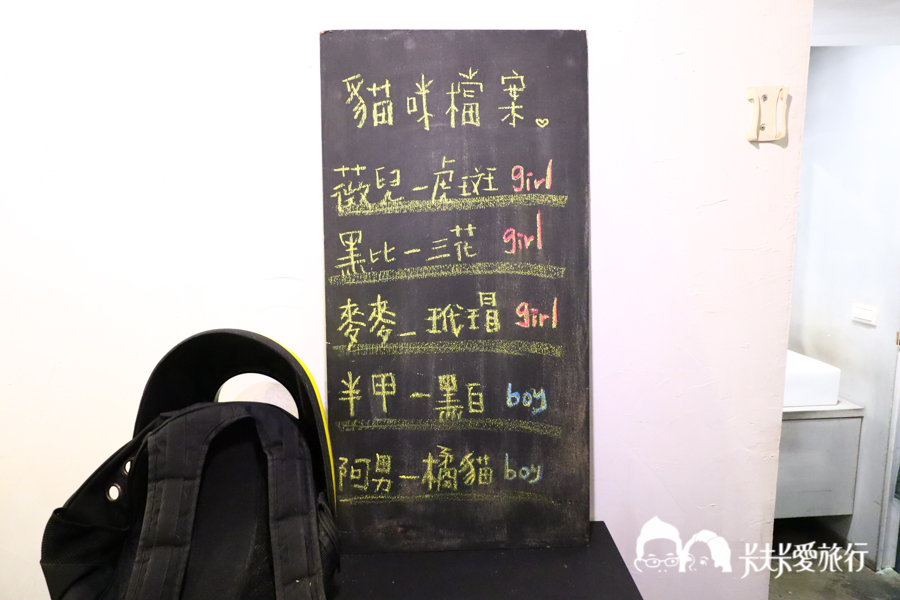 貓咪檔案♡
薇兒－虎斑 girl
黑比－三花 girl
麥麥－玳瑁 girl
半甲－黑白 boy
阿男－橘貓 boy
卡夫卡愛旅行